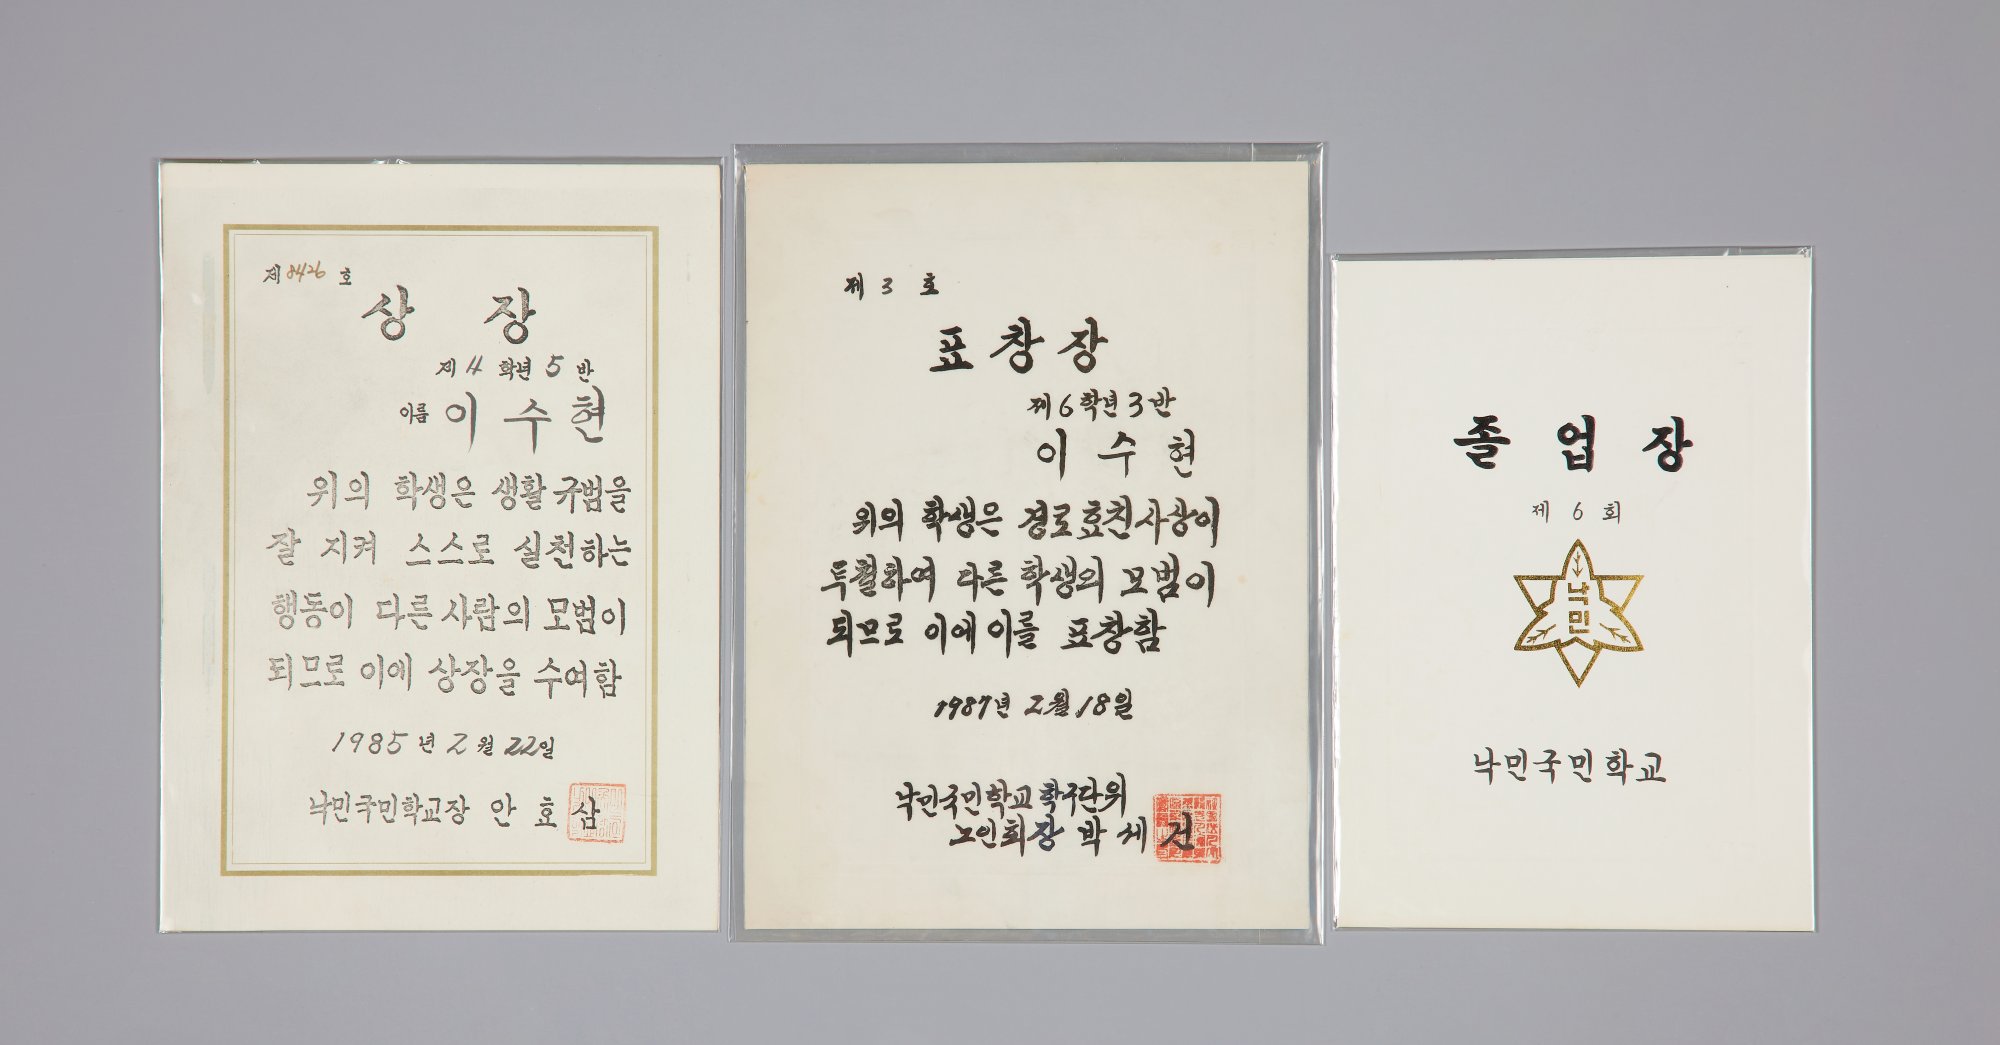 제8426호
상장
제4학년5반
이름 이수현
위의 학생은 생활 규범을
잘 지켜 스스로 실천하는
행동이 다른 사람의 모범이
되므로 이에 상장을 수여함
1985년 2월 22일
낙민국민학교장 안호삼
제3호
표창장
제6학년3반
이수현
위의 학생은 경로효친사상이
투철하여 다른 학생의 모범이
되므로 이에 이를 표창함
1987년 2월 18일
낙민국민학교 학구단위
노인회장 박세건
졸업장
제6회
낙민
낙민국민학교